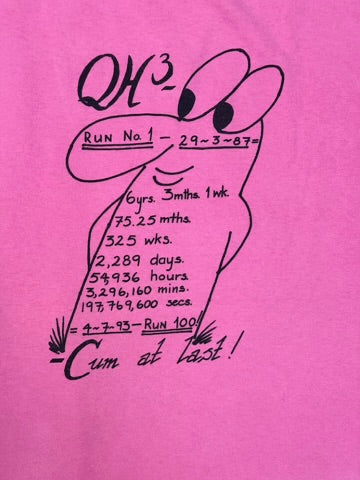 QH³-
RUN No. 1 – 29~3~87=
6yrs. 3mths. 1wk.
75.25 mths.
325 wks.
2,289 days.
54,936 hours.
3,296,160 mins.
197,769,600 secs.
= 4~7~93 – RUN 100!
-Cum at last!